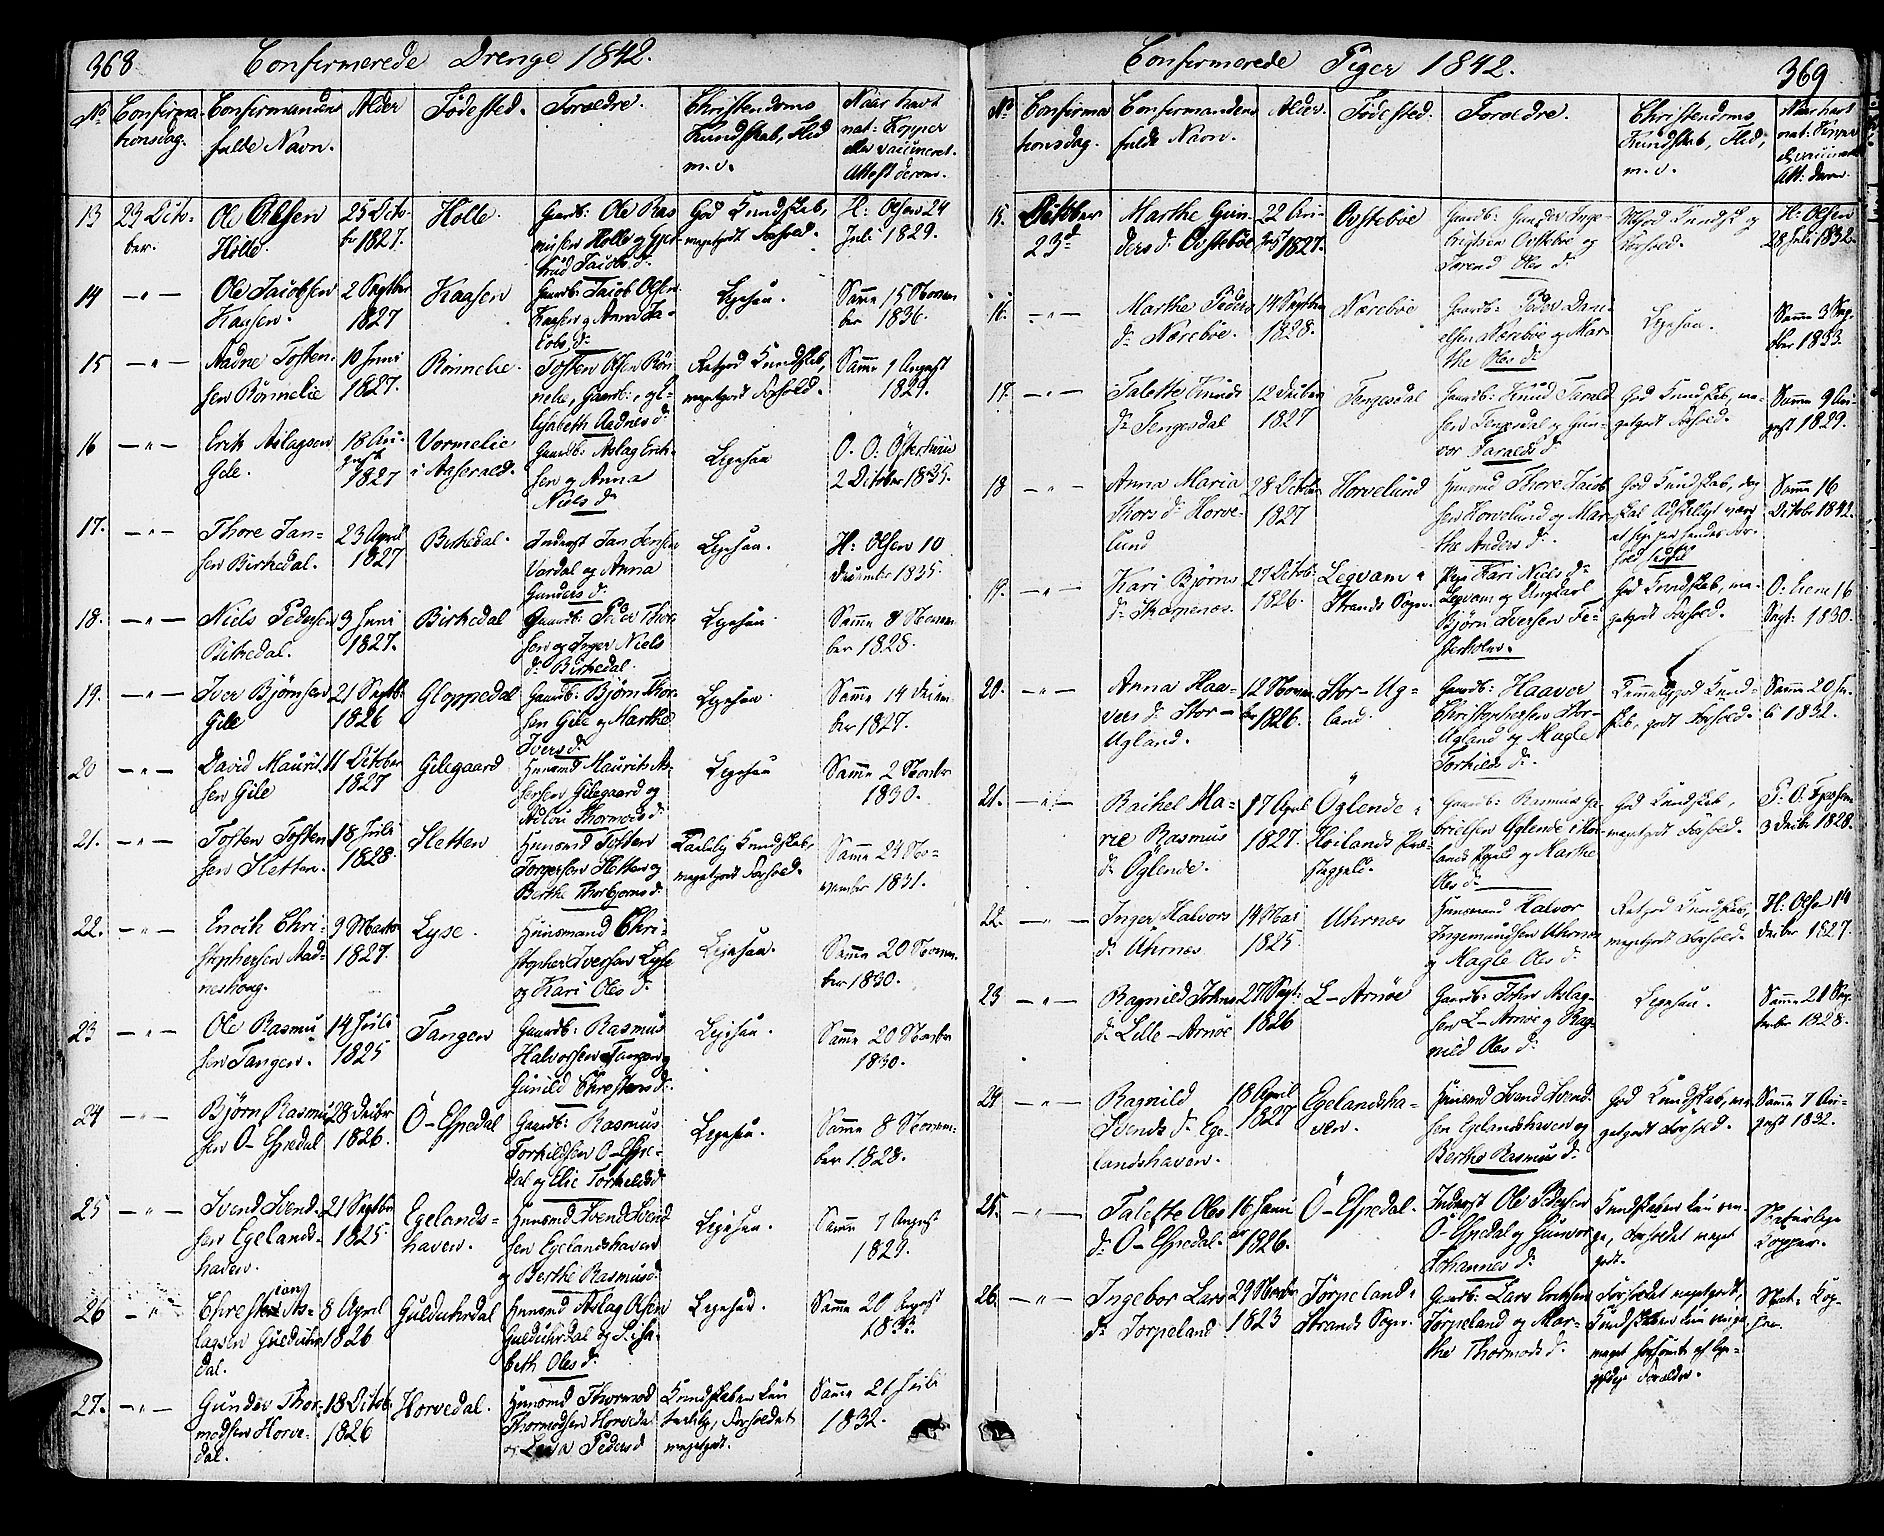 368
Confirmerede Drenge 1842.
No
Confirma-
tionsdag.
Confirmandens
fulde Navn.
Alder
Fødested.
Forældre.
Christendoms
Kundskab, Flid
m. v.
Naar havt
nat: Kopper
eller vaccineret.
Attest derom.
13
23 Octo-
ber.
Ole Olsen
Holle.
25 Octo-
br 1827.
Holle.
Gaardb: Ole Ras
musen Holle og Gjer-
trud Jacobs d:
God Kundskab,
megetgodt Forhold.
H: Olsen 24
Juli 1829.
14
— " —
Ole Jacobsen
Kaasen.
2 Septbr
1827
Kaasen
Gaardb: Jacob Olsen
Kaasen og Anna Ja-
cobs d:
Ligesaa.
Samme 15 Novem
ber 1836.
15
— " —
Aadne Tosten-
sen Rönnelie
10 Juni
1827.
Rönnelie.
Tosten Olsen Rön-
nelie, Gaardb:, og E-
lisabeth Aadnes d:
Retgod Kundskab,
megetgodt Forhold.
Samme 9 August
1829.
16
— " —
Erik Aslagsen
Gile.
18 Au-
gust
1827
Vormelie
i Aaserald.
Gaardb: Aslag Erik-
sen og Anna
Niels d:
Ligesaa
O. O: Österhuus
2 October 1835.
17.
— " —
Thore Jan-
sen Birkedal.
23 April
1827
Birkedal.
Inderst Jan Jensen
Vardal og Anna
Gunders d:
Ligesaa.
H: Olsen 10
December 1835.
18.
— " —
Niels Pedersen
Birkedal.
9 Juni
1827.
Birkedal
Gaardb: Peder Thor-
sen og Inger Niels
d: Birkedal.
Ligesaa.
Samme 8 Novem
ber 1828.
19.
— " —
Iver Bjørnsen
Gile
21 Septb:
1826
Gloppedal
Gaardb: Bjørn Thor-
sen Gile og Marthe
Ivers d:
Ligesaa.
Samme 14 Decem-
ber 1827.
20
— " —
David Maurit-
sen Gile
11 October
1827
Gilegaard
Huusmd Maurits As-
sersen Gilegaard og
Thormods d:
Ligesaa
Samme 2 Novbr
1830.
21.
— " —
Tosten Tosten-
sen Sletten.
18 Juli
1828.
Sletten
Huusmd Tosten
Torgersen Sletten og
Berthe Thorbjørns d:
Taalelig Kundskab,
megetgodt Forhold.
Samme 24 No-
vember 1831.
22.
— " —
Enoch Chri-
stophersen Aad-
neshoug.
9 Marts
1827.
Lyse.
Huusmand Chri-
stopher Iversen Lyse
og Kari Oles d:
Ligesaa.
Samme 20 Novem-
ber 1830.
23
— " —
Ole Rasmu-
sen Tangen.
14 Juli
1825
Tangen
Gaardb: Rasmus
Halvorsen Tangen og
Gunild Christens d:
Ligesaa.
Samme 20 Novbr
1830.
24
— " —
Bjørn Rasmu-
sen Ö-Espedal
28 Decbr
1826.
Ö-Espedal
Gaardb: Rasmus
Torkildsen Ö-Espe-
dal og Elie Torkelds d:
Ligesaa.
Samme 8 Novem-
ber 1828.
25
— " —
Svend Svend-
sen Egelands-
haven.
21 Septbr
1825
Egelands-
haven.
Huusmd Svend Svend
sen Egelandshaven
og Berthe Rasmus d:
Ligesaa.
Samme 7 August
1829.
26
— " —
Christian As-
lagsen Gulduhr-
dal.
8 April
1826
Gulduhrdal
Huusmd Aslag Olsen
Gulduhrdal og Lisa-
beth Oles d:
Ligesaa.
Samme 20 August
27.
— " —
Gunder Thor-
modsen Horve-
dal.
18 Octob:
1826
Horvedal.
Huusmd Thormod
Thormodsen Horvedal
og Peders d
Kundskaben kun
taalelig, Forholdet
megetgodt.
Samme 21 Juli
1832.
Confirmerede Piger 1842.
369
No
Confirma
tionsdag.
Confirmandens
fulde Navn.
Alder.
Fødested.
Forældre.
Christendoms
Kundskab, Flid,
m. v.
Naar havt
nat: Kopper
el. vaccineret
Att: derom.
15.
October
23d
Marthe Gun-
ders d: Ovstebøe
22 Au-
gust 1827.
Ovstebøe
Gaardb: Gunder Inge-
brigtsen Ovstebøe og
Torend Oles d:
Megod Kundsk og
Forhold.
H: Olsen
28 Juli 1832.
16.
— " —
Marthe Peders
d: Nærebøe.
14 Septbr
1828.
Nærebøe
Gaardb: Peder Dani-
elsen Nærebøe og Mar-
the Oles d:
Ligesaa.
Samme 3 Sep-
tber 1833.
17.
— " —
Talette Knuds
d: Tengesdal
12 Decbr
1827
Tengesdal
Gaardb: Knud Tarald
sen Tengesdal og Gun-
vor Taralds d:
God Kundskab, me-
getgodt Forhold.
Samme 9 Au-
gust 1829.
18
— " —
Anna Maria
Thors d: Horve-
lund
28 Octbr
1827
Horvelund
Huusmd Thore Jacob
sen Horvelund og Mar-
the Anders d:
God Kundskab, dog
skal Adskilligt være
at sige paa hendes For-
hold
Samme 16
Octobr 1842.
19.
— " —
Kari Bjørns
d: Skarpenæs.
27 Octob:
1826.
Leqvam i
Strands Sogn.
Pige Kari Niels d:
Leqvam og Ungkarl
Bjørn Iversen Fe-
God Kundskab, me-
getgodt Forhold.
16
Sept: 1830.
20.
— " —
Anna Haa-
vers d: Stor-
Ugland.
12 Novem
br 1826.
Stor-Ug-
land.
Gaardb: Haaver
Christophersen Stor-
Ugland og Magle
Torkilds d:
Temmeliggod Kund-
skab, godt Forhold.
Samme 20 Ju-
li 1832.
21.
— " —
Rachel Ma-
rie Rasmus
d: Öglende.
17 April
1827.
Öglende i
Høilands Præ-
stegjeld.
Gaardb: Rasmus Ga-
brielsen Öglende i Høi-
lands Pgjeld og Marthe
Oles d:
God Kundskab,
megetgodt Forhold.
3 Decbr 1828.
22.
— " —
Inger Halvors
d: Uhrnes
14 Mai
1825
Uhrnes
Huusmand Halvor
Ingemundsen Uhrnes
og Magle Oles d:
Retgod Kundskab,
megetgodt Forhold.
H: Olsen 14
Decbr 1827.
23
— " —
Ragnild Johns
d: Lille-Arnøe
27 Sept:
1826
L-Arnøe
Gaardb: John Aslag-
sen L-Arnøe og Rag-
nild Oles d:
Ligesaa.
Samme 21 Sep-
tember 1828.
24
— " —
Ragnild
Svends d: Ege-
landshaven.
18 April
1827
Egelandsha-
ven.
Huusmd Svend Svend-
sen Egelandshaven og
Berthe Rasmus d:
God Kundskab, me-
getgodt Forhold.
Samme 7 Au-
gust 1832.
25.
— " —
Talette Oles
d: Ö-Espedal.
16 Janu
ar 1826.
Ö-Espedal.
Inderst Ole Pedersen
Ö-Espedal og Gunvor
Johannes d:
Kundskaben kun rin-
ge, Forholdet meget
godt.
Naturlige
Kopper.
26.
— " —
Ingebor Lars
d: Jorpeland
29 Novbr
1823
Jörpeland i
Strands Sogn.
Gaardb: Lars Eriksen
Jörpeland og Mar-
the Thormods d:
Forholdet megetgodt,
Kundskaben kun ringe
meget forsømt af lige-
gyldige Forældre.
Nat: Kop-
per.